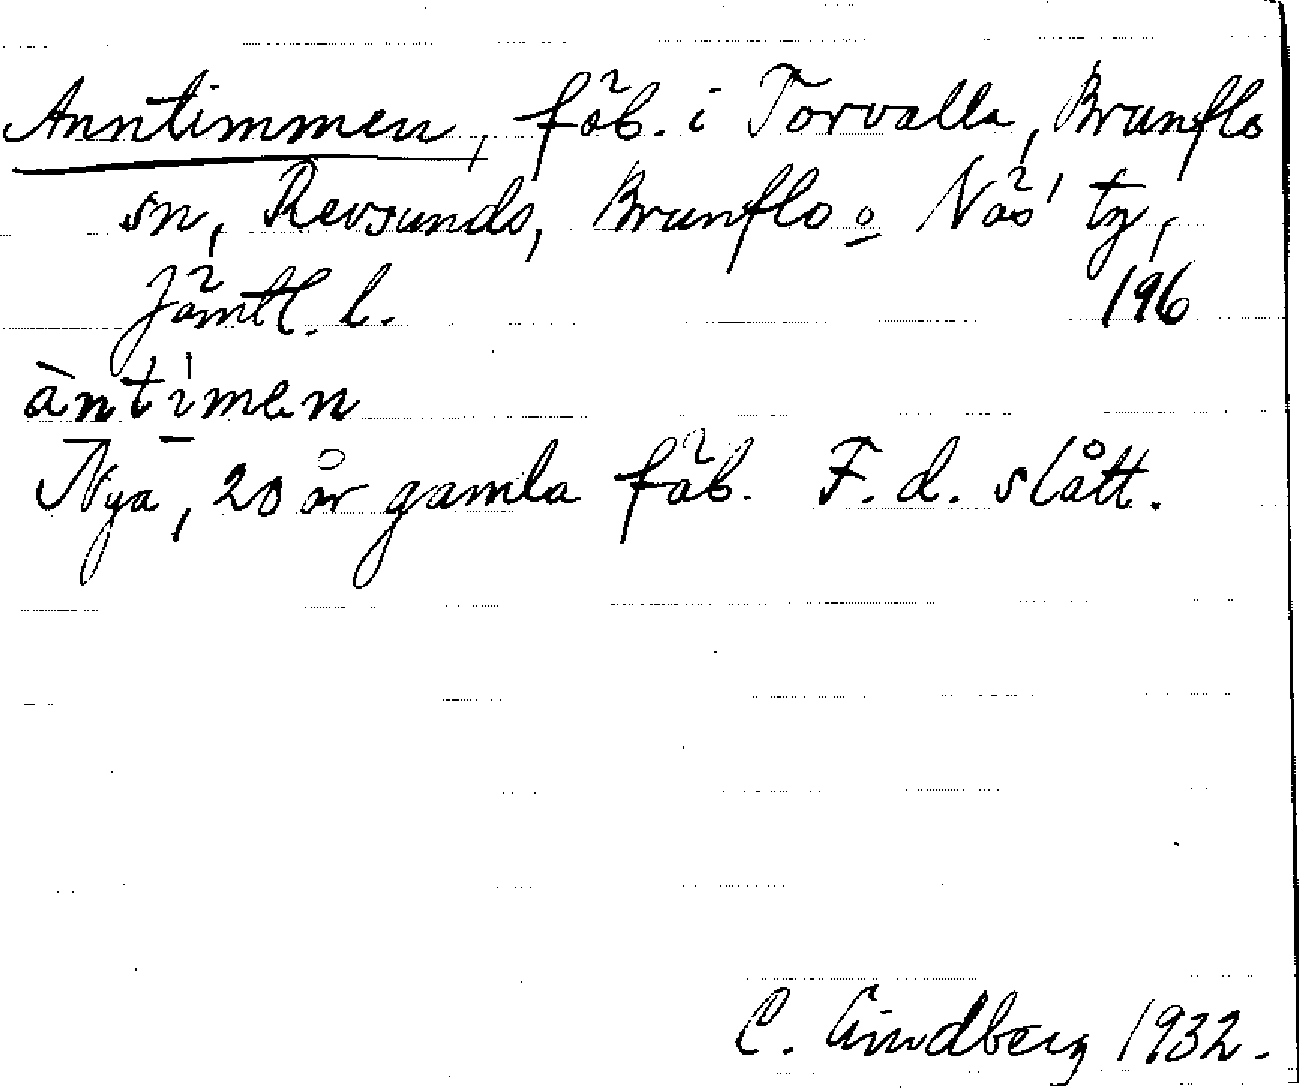 Anntimmen, fäb. i Torvalla, Brunflo
sn, Revsunds, Brunflo o Näs' tg,
Jämtl. l. 196
àntìmen
Nya, 20 år gamla fäb. F. d. slått.
C. Lindberg 1932.